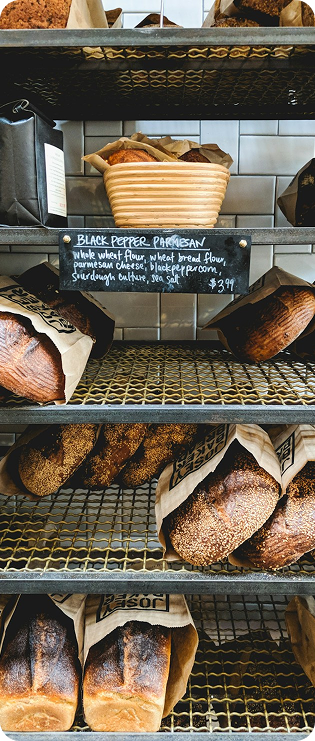 BLACK PEPPER PARMESAN
whole wheat flour, wheat bread flour,
parmesan cheese, black peppercorn,
sourdough culture, sea salt
$3.99
JOSEY